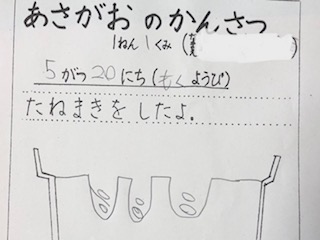 あさがおのかんさつ
1ねん1くみ(なまえ )
5がつ20にち(もくようび)
たねまきをしたよ.